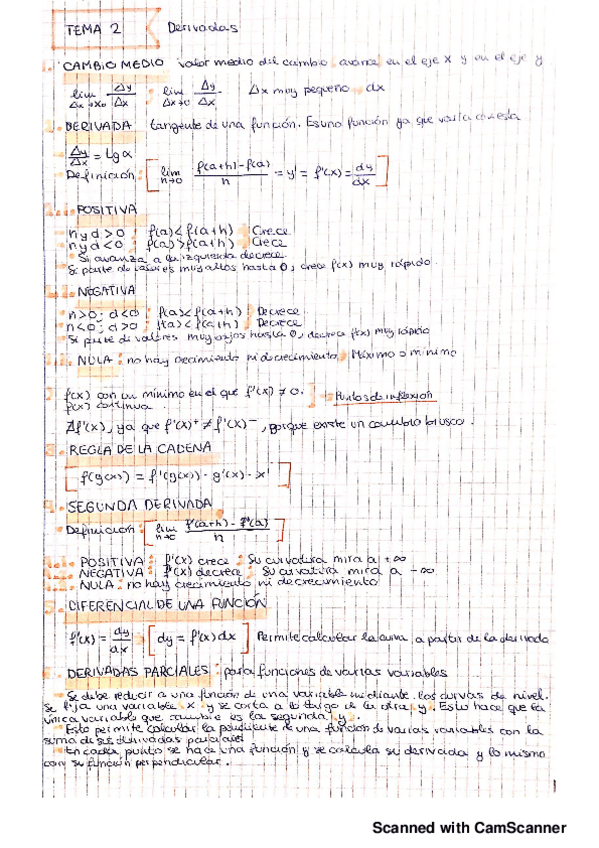 TEMA 2 Derivadas
1. CAMBIO MEDIO valor medio del cambio, avance en el eje x y en el eje y
lim Δx→x₀ Δy/Δx : lim Δx→0 Δy/Δx Δx muy pequeño dx
DERIVADA tangente de una función. Es una función ya que varía con esta
Δy/Δx = tg α
Definición: [ lim h→0 f(a+h)-f(a)/h = y' = f'(x) = dy/dx ]
POSITIVA
h y d > 0 ; f(a) < f(a+h) Crece
h y d < 0 ; f(a) > f(a+h) Crece
Si avanza a la izquierda decrece.
Si parte de valores muy altos hasta 0, crece f(x) muy rápido.
NEGATIVA
h>0; d<0 ; f(a) < f(a+h) Decrece
h<0; d>0 ; f(a) < f(a+h) Decrece
Si parte de valores muy bajos hasta 0, decrece f(x) muy rápido
NULA: no hay crecimiento ni decrecimiento. Máximo o mínimo
f(x) con un mínimo en el que f'(x) ≠ 0. Puntos de inflexión
f(x) continua.
∄f'(x), ya que f'(x)⁺ ≠ f'(x)⁻, porque existe un cambio brusco.
3. REGLA DE LA CADENA
[ f(g(x)) = f'(g(x)) · g'(x) · x' ]
4. SEGUNDA DERIVADA
Definición: [ lim h→0 f'(a+h) - f'(a)/h ]
POSITIVA: f'(x) crece; Su curvatura mira a +∞
NEGATIVA: f'(x) decrece; Su curvatura mira a -∞
NULA: no hay crecimiento ni decrecimiento
5. DIFERENCIAL DE UNA FUNCIÓN
f'(x) = dy/dx [ dy = f'(x) dx ] Permite calcular la a partir de la derivada
DERIVADAS PARCIALES: para funciones de varias variables
Se debe reducir a una función de una variable mediante las curvas de nivel.
Se fija una variable, x, y se corta a lo largo de la otra, y. Esto hace que la
única variable que cambie es la segunda, y.
Esto permite calcular la pendiente de una función de varias variables con la
suma de sus derivadas parciales
En cada punto se hace una función y se calcula su derivada y lo mismo
con su función perpendicular.
1
Scanned with CamScanner